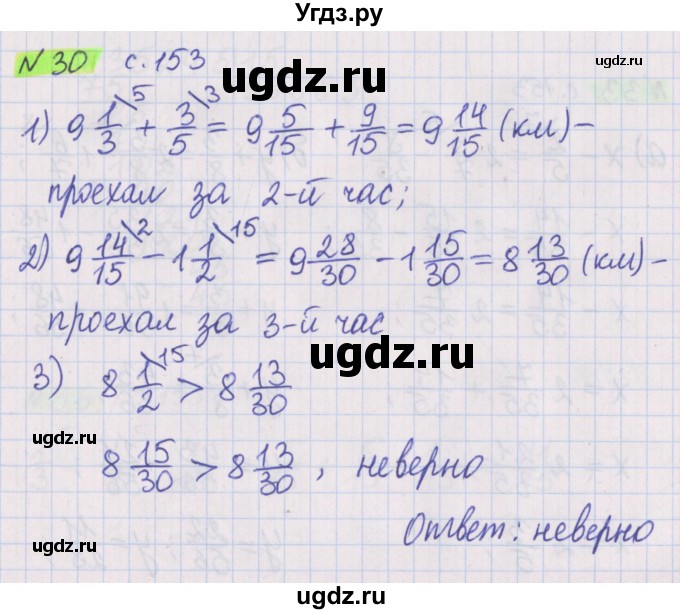 Угдз.ру
№ 30 с. 153
ugdz.ru
1) 9 1/3 \5 + 3/5 \3 = 9 5/15 + 9/15 = 9 14/15 (км) –
проехал за 2-й час;
2) 9 14/15 \2 – 1 1/2 \15 = 9 28/30 – 1 15/30 = 8 13/30 (км) –
проехал за 3-й час
ugdz.ru
3) 8 1/2 \15 > 8 13/30
ugdz.ru
8 15/30 > 8 13/30 , неверно
Ответ: неверно
ugdz.ru
ugdz.ru